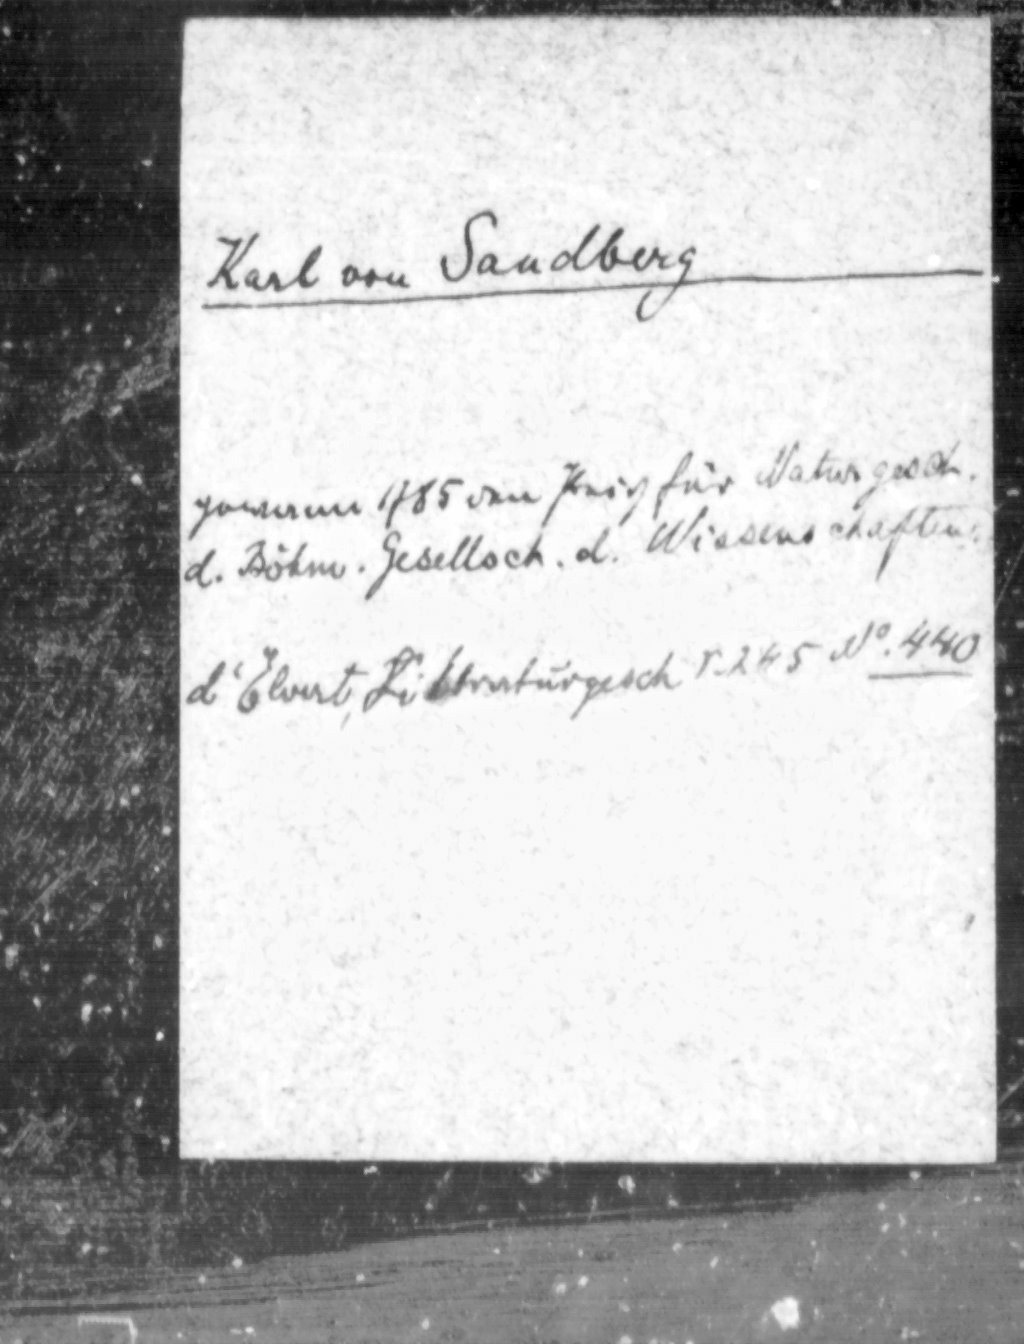 Karl von Sandberg
gewann 1785 den Preis für Naturgesch.
d. Böhm. Gesellsch. d. Wissenschaften.
d'Elvert, Litteraturgesch S. 245 No. 440